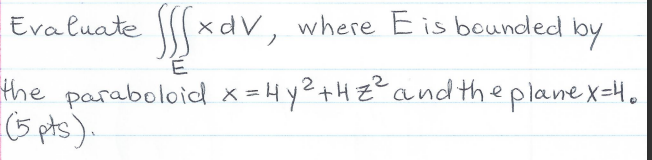 Evaluate ∭ x dV, where E is bounded by
E
the paraboloid x = 4y²+4z² and the plane x=4.
(5 pts).